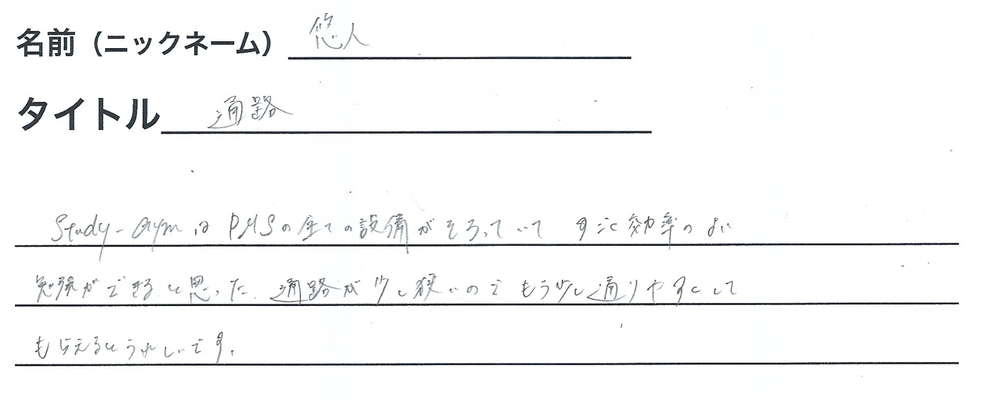 名前（ニックネーム） 悠人
タイトル 通路
Study-Gymは PMSの全ての設備がそろっていて すごく効率のよい
勉強ができると思った。通路が少し狭いのでもう少し通りやすくして
もらえるとうれしいです。